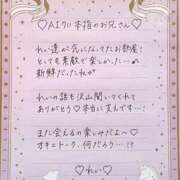 ♡AIクリ本指のお兄さん♡
れい達が気になってたお部屋!
とても素敵で楽しかった…♪
新鮮だったねっ
れいの話も沢山聞いてくれて
ありがとう♡本当に支えです…!
また会えるの楽しみだよ〜
オキニトーク、何だろう…!?
♡れい♡